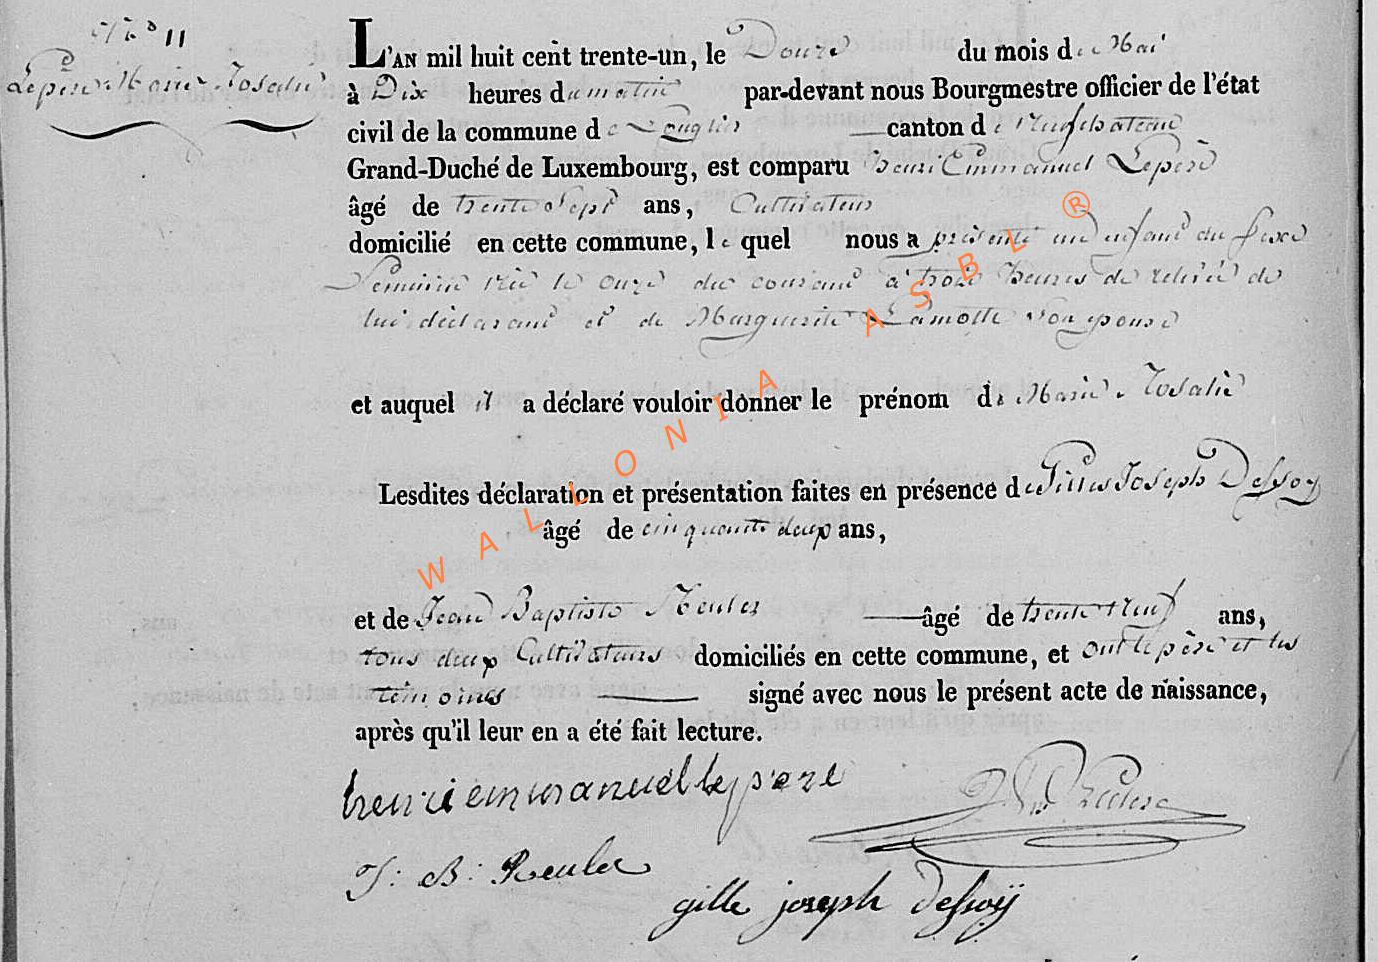 N° 11
Lepère Marie Rosalie
L'AN mil huit cent trente-un, le Douze du mois de Mai
à Dix heures du matin par-devant nous Bourgmestre officier de l'état
civil de la commune de Longlier canton de Neufchateau
Grand-Duché de Luxembourg, est comparu henri Emmanuel Lepere
âgé de trente Sept ans, Cultivateur
domicilié en cette commune, le quel nous a présenté un enfant du sexe
feminin née le onze du courant à trois heures de relevée de
lui déclarant et de Marguerite Lamotte son epouse
et auquel il a déclaré vouloir donner le prénom de Marie Rosalie
Lesdites déclaration et présentation faites en présence de Gilles Joseph Dessoy
âgé de cinquante deux ans,
et de Jean Baptiste Reuler âgé de trente neuf ans,
tous deux Cultivateurs domiciliés en cette commune, et ont le père et les
témoins signé avec nous le présent acte de naissance,
après qu'il leur en a été fait lecture.
henri emmanuel lepere
J: B: Reuler
gille joseph dessoÿ
WALLONIA ASBL ®